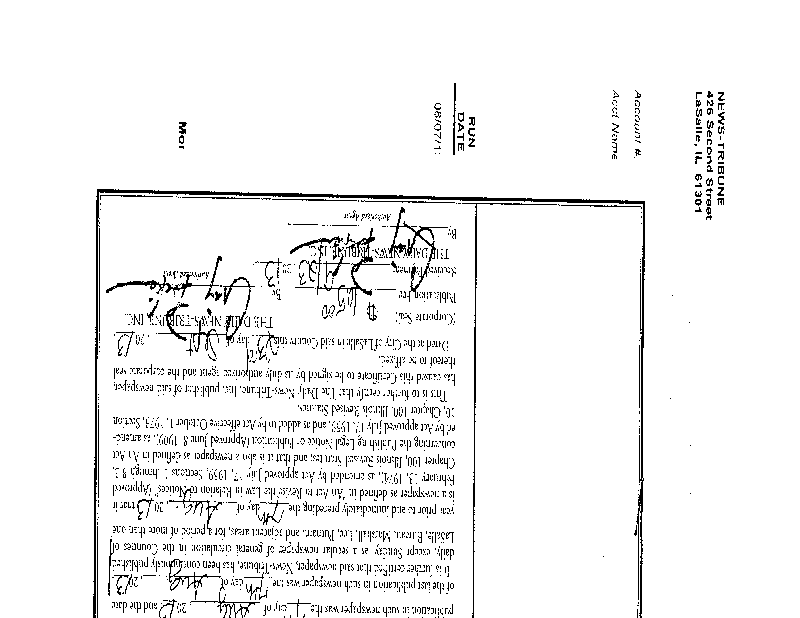 NEWS-TRIBUNE
426 Second Street
LaSalle, IL 61301
Account #:
Acct Name
RUN
DATE
08/07/1
Mor
publication in such newspaper was the day of Aug 20 13 and the date
of the last publication in such newspaper was the 7th day of Aug , 20 13 .
It is further certified that said newspaper, News-Tribune, has been continuously published
daily, except Sunday as a secular newspaper of general circulation in the Counties of
LaSalle, Bureau, Marshall, Lee, Putnam, and adjacent areas, for a period of more than one
year prior to and immediately preceding the 7th day of Aug , 20 13 that it
is a newspaper as defined in "An Act to Revise the Law in Relation to Notices" (Approved
February 13, 1874), as amended by Act approved July 17, 1959, Sections 1 through 8.1,
Chapter 100, Illinois Revised Statutes; and that it is also a newspaper as defined in An Act
concerning the Publishing Legal Notice or Publication (Approved June 8, 1909), as amend-
ed by Act approved July 17, 1959, and as added to by Act effective October 1, 1973, Section
10, Chapter 100, Illinois Revised Statutes.
This is to further certify that The Daily News-Tribune, Inc., publisher of said newspaper,
has caused this Certificate to be signed by its duly authorized agent and the corporate seal
thereof to be affixed.
Dated at the City of LaSalle in said County this 23rd day of Sept , 20 13 .
THE DAILY NEWS-TRIBUNE, INC.
(Corporate Seal)
By
Authorized Agent
Publication Fee
THE DAILY NEWS-TRIBUNE, INC.
By
Authorized Agent